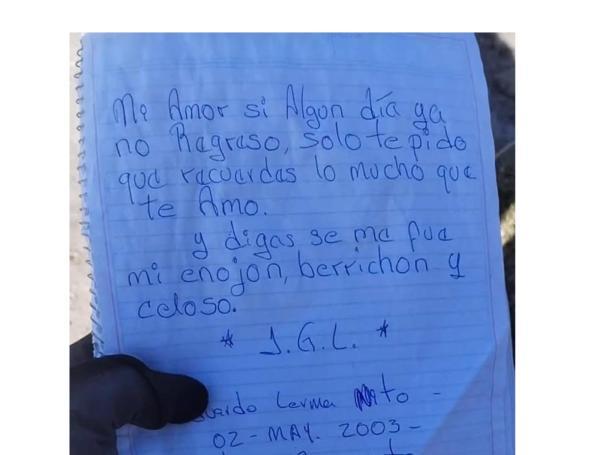 Mi Amor si Algun día ya
no Regreso, solo te pido
que recuerdes lo mucho que
te Amo.
y digas se me fue
mi enojon, berrichon y
celoso.
* J.G.L. *
Lerma
02-MAY. 2003-